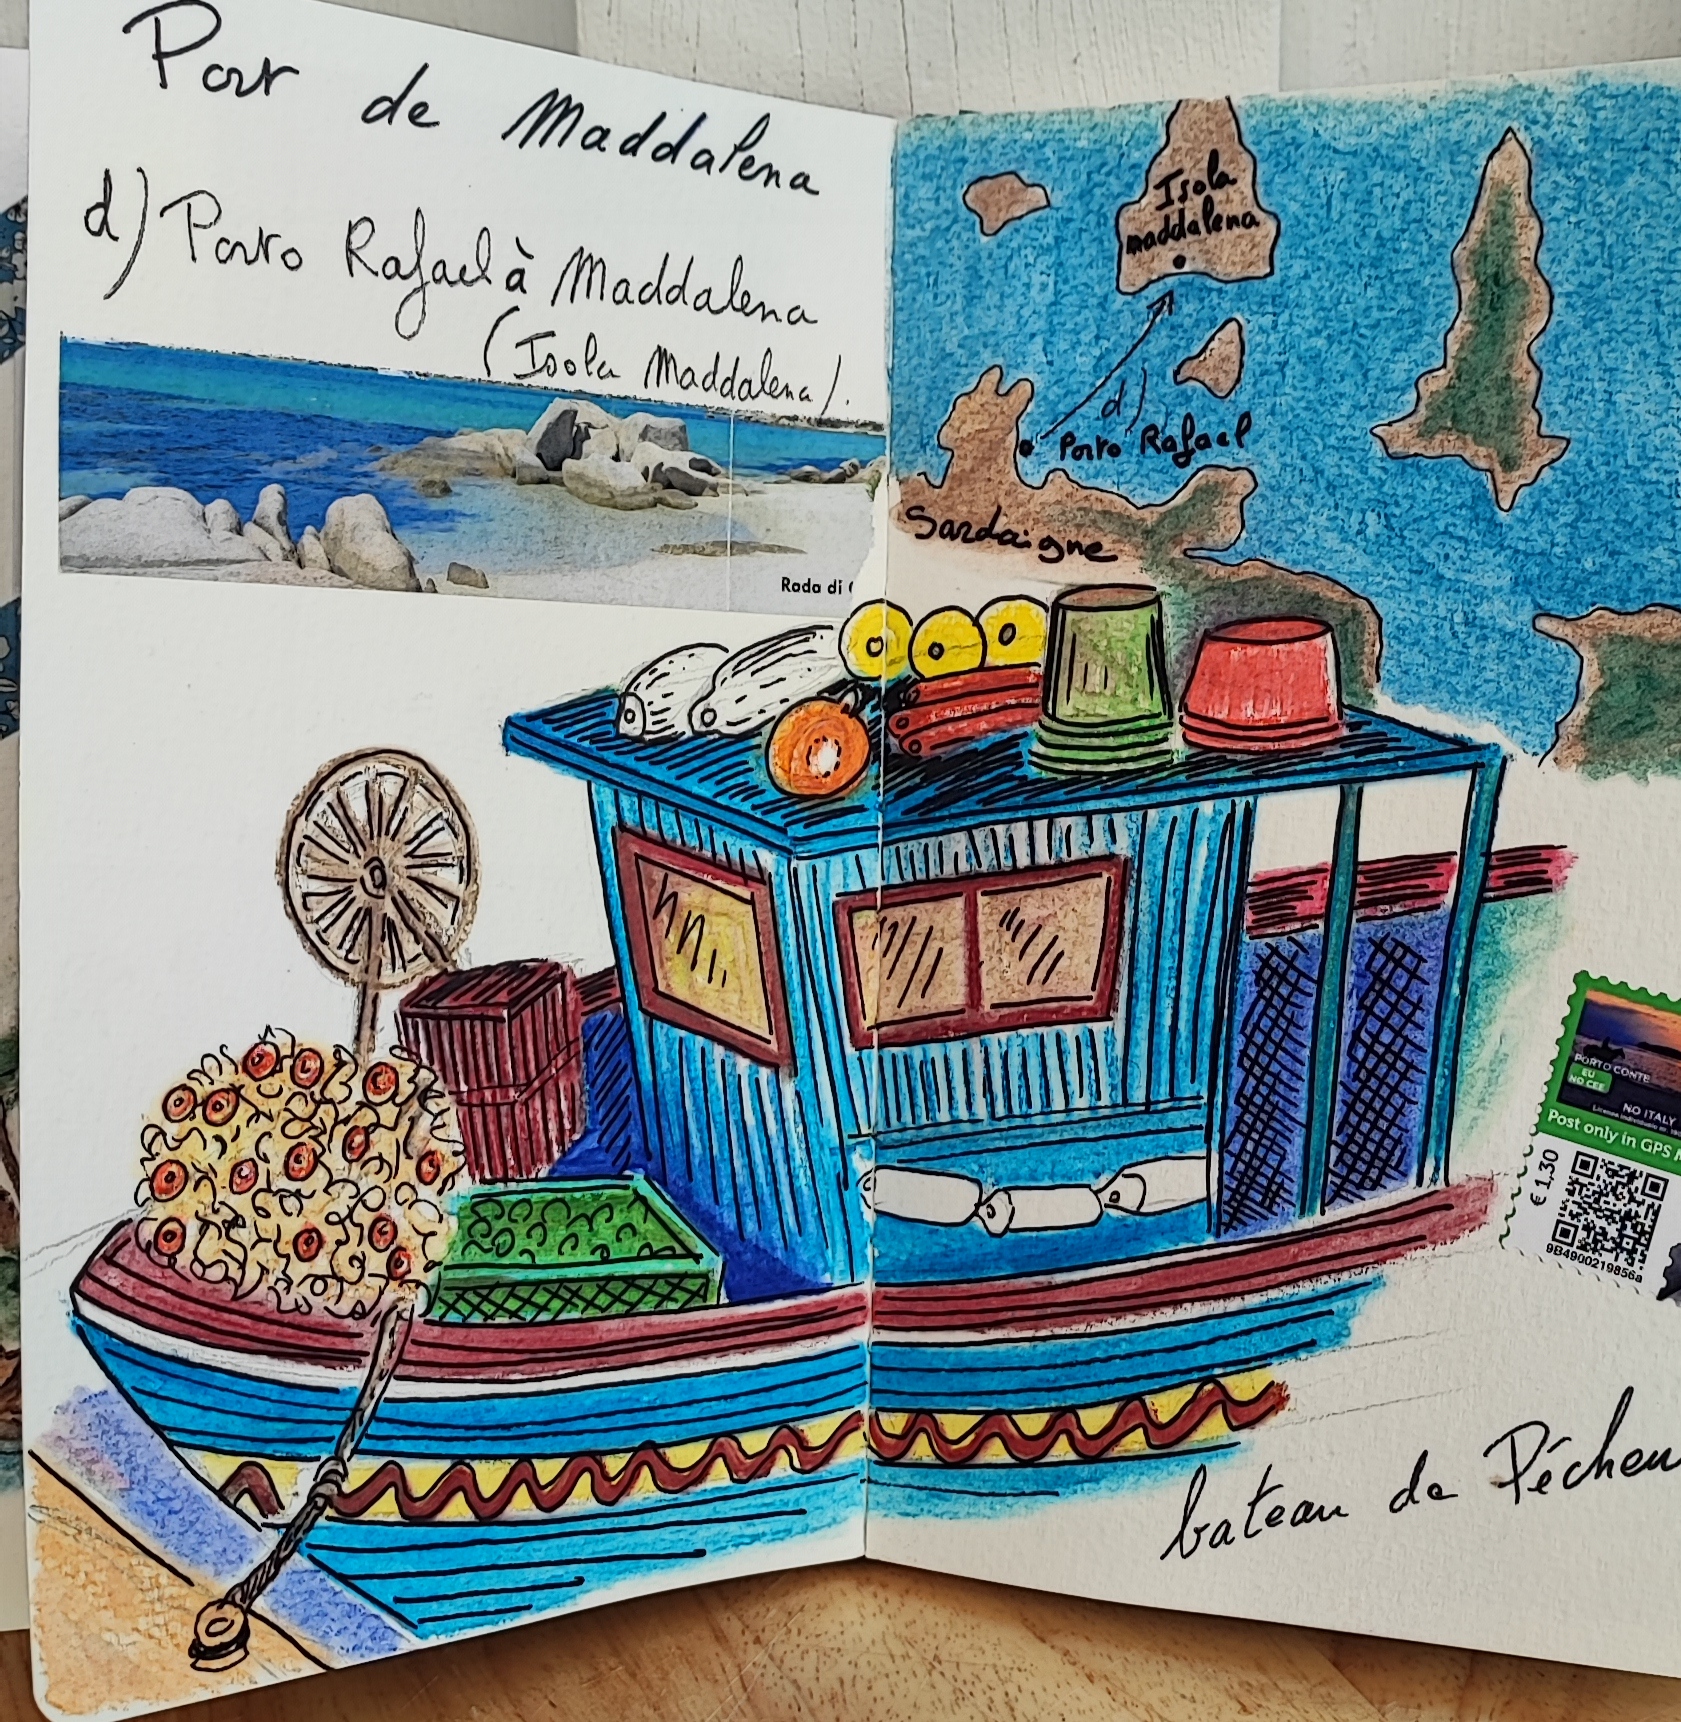 Port de Maddalena
d) Porto Rafael à Maddalena
(Isola Maddalena).
Rada di
Isola
maddalena
d)
Porto Rafael
Sardaigne
PORTO CONTE
EU
NO CEE
NO ITALY
Post only in GPS
€ 1,30
9B4900219856a
bateau de Pêcheu